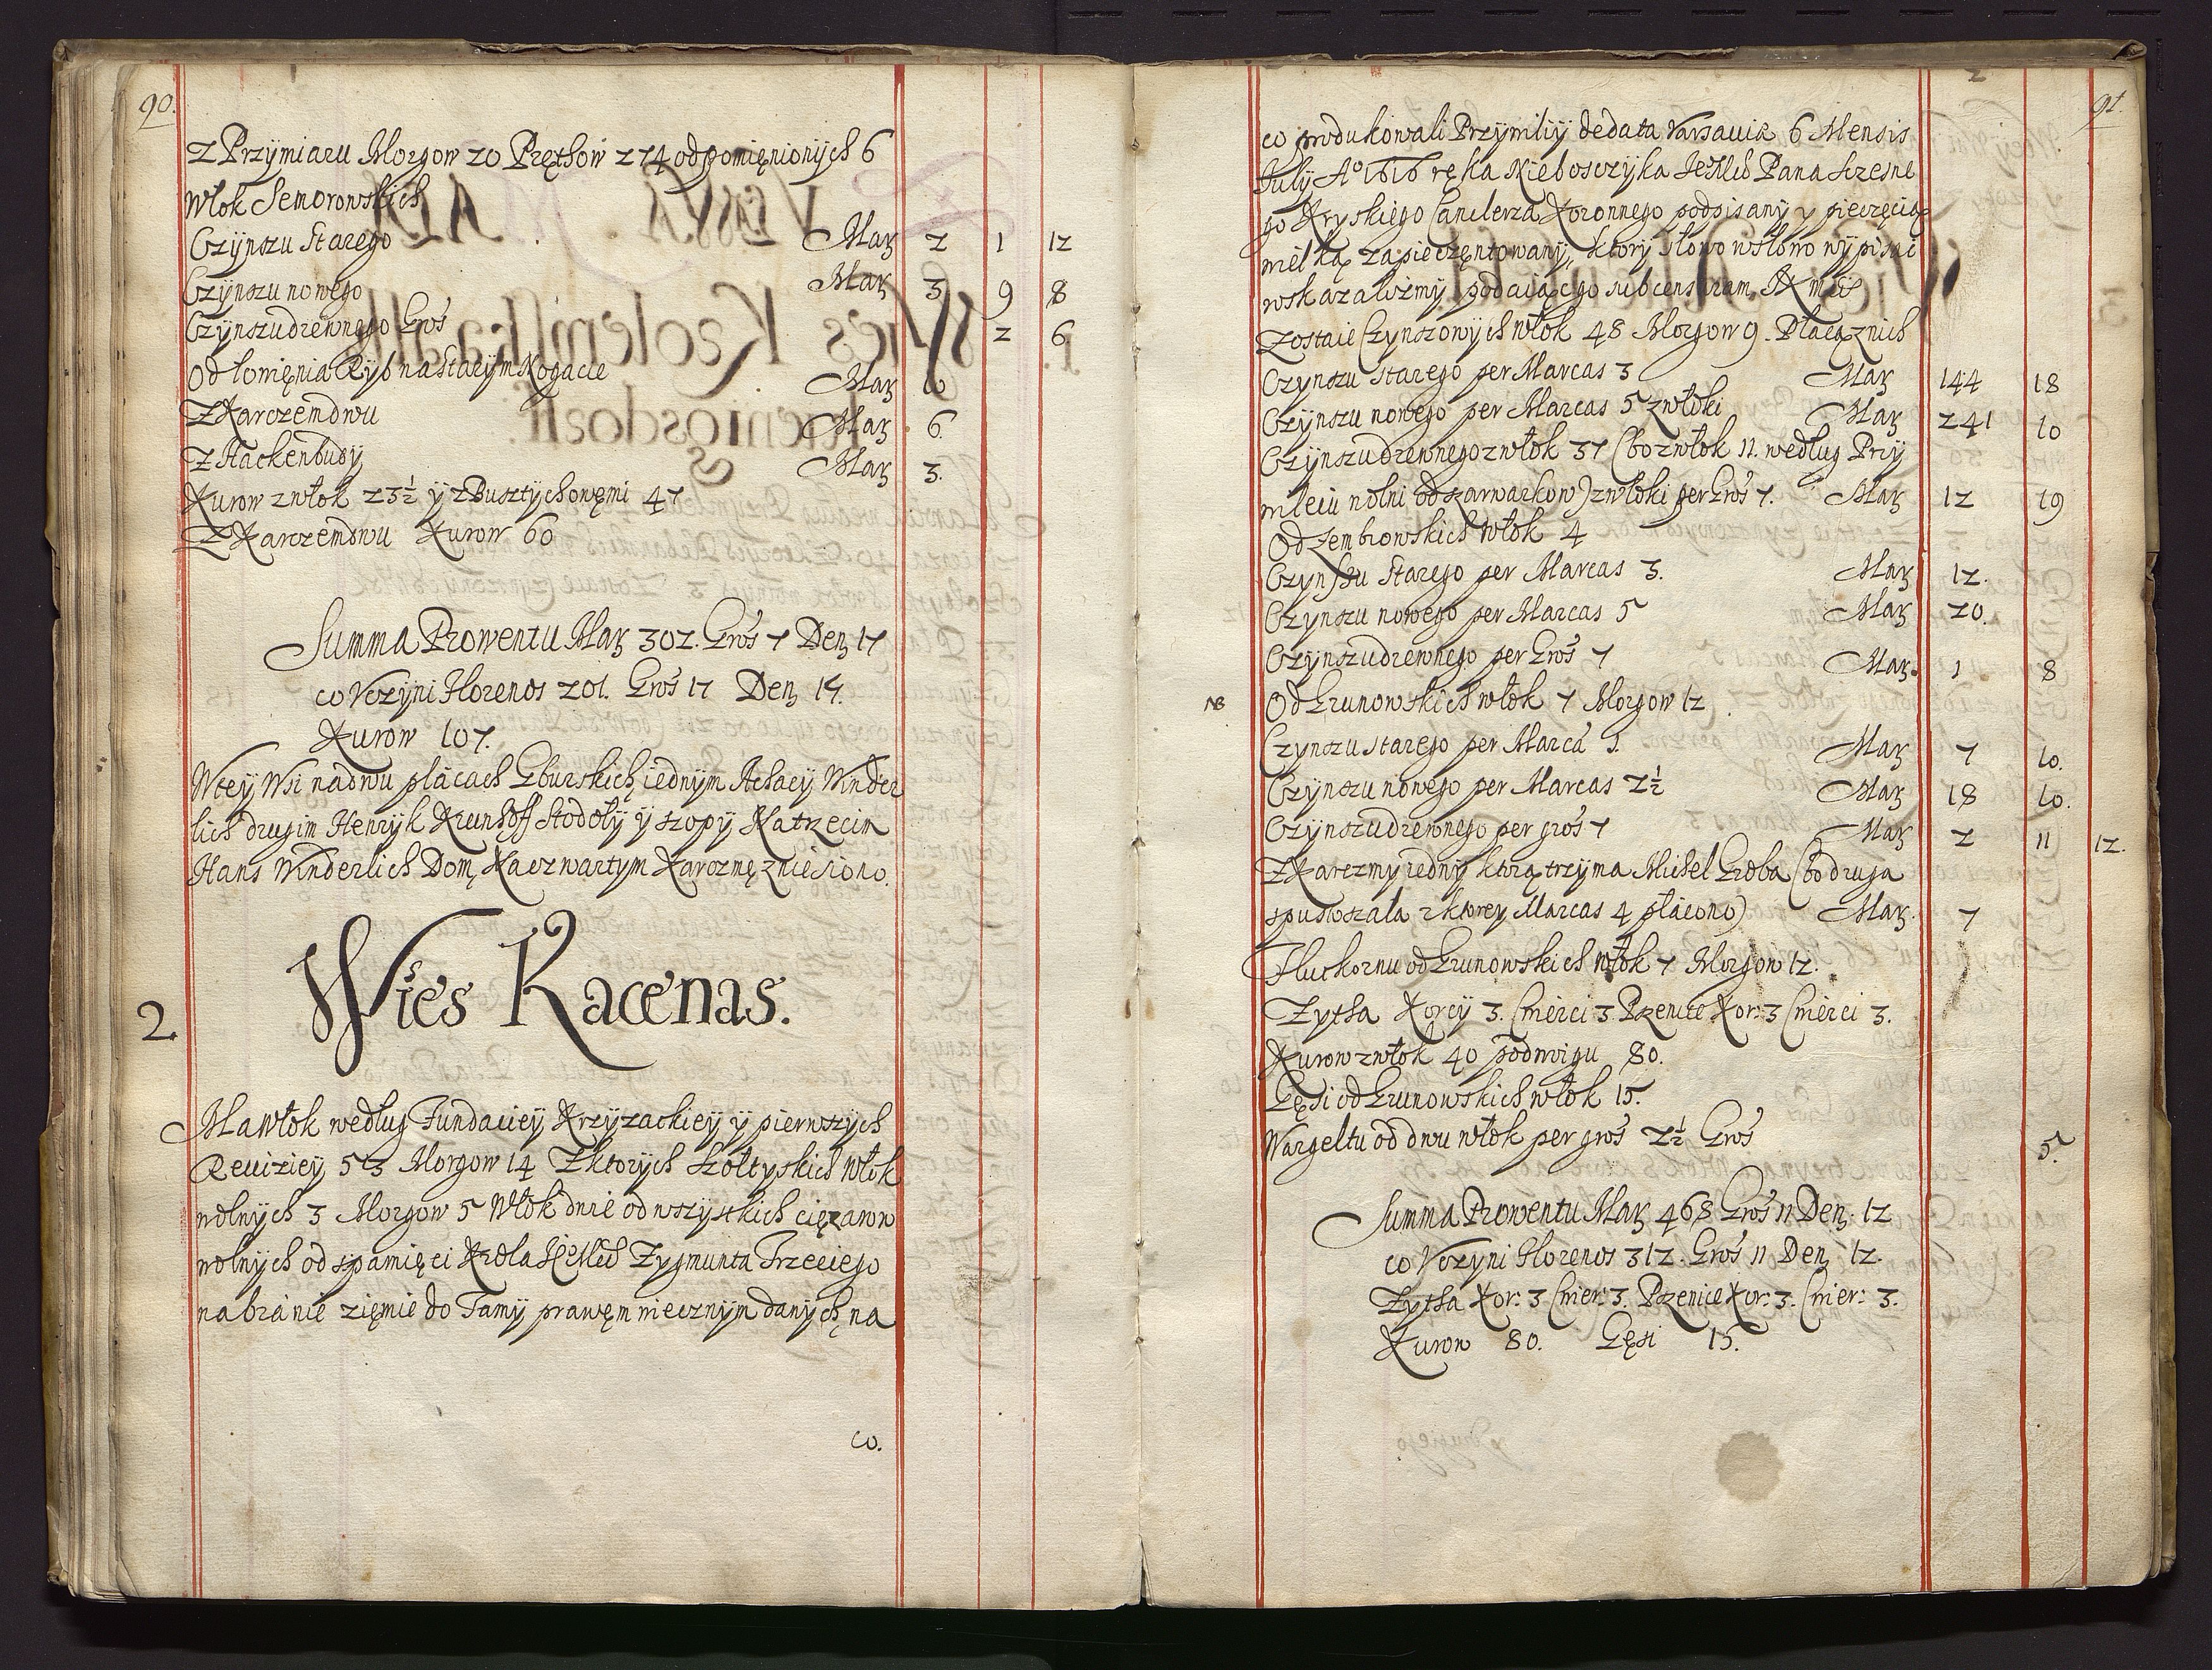 90.
Z Przymiaru Morgow 20 Pręthow 274 od pomięnionÿch 6
Włok Semorowskich
Czÿnszu Starego Mar 2 1 12
Czÿnszu nowego Mar 3 9 8
Czÿnszu drewnego Gros 2 6
Od łomięnia Rÿb na Starÿm Nogacie Mar 10
Z Karczem dwu Mar 6.
Z Hackenbudÿ Mar 3.
Kurow z włok 23½ ÿ z Pusztÿchowęmi 47
Z Karczem dwu Kurow 60
Summa Prowentu Mar 302. Gros 7 Den 17
co Vczÿni Florenos 201. Gros 17 Den 14.
Kurow 107.
W teÿ Wsi na dwu plácach Gburskich, iednÿm Achacÿ Winder
lich drugim Henrÿk Krunhoff Stodołÿ ÿ szopÿ Na trzecim
Hans Winderlich Dom, Na czwartÿm Karczmę zniesiono.
2.
Wies Kacenas.
Ma włok według Fundacieÿ Krzÿzackieÿ ÿ pierwszÿch
Reuizieÿ 53 Morgow 14 Z ktorÿch Szołtÿskich włok
wolnÿch 3 Morgow 5 Włok dwie od wszÿstkich ciężarow
wolnÿch od s pamięci Krola JeMci Zÿgmunta Trzeciego
na bránie zięmie do Tamÿ prawęm wiecznÿm danÿch, na
co.
91.
co produkowali Przÿwiliÿ de data Varsauiæ 6 Mensis
Julÿ Aº 1616 ręka Nieboszczÿka Je Mci Pana Szczesne
go Krÿskiego Canclerza Koronnego podpisanÿ ÿ pieczęcią
wielką zapieczęntowanÿ, ktorÿ słowo w słowo wÿpisać
wskazalizmÿ podaiąc go sub censuram JK Mci
Zostaie Czÿnszowÿch włok 48 Morgow 9. Płacą z nich
Czÿnszu starego per Marcas 3 Mar 144 18
Czÿnszu nowego per Marcas 5 z włoki Mar 241 10
Czÿnszu drewnego z włok 37 (bo z włok 11. według Przÿ
wileiu wolni od szarwarkow) z włoki per Gros 7. Mar 12 19
Od Zembrowskich Włok 4
Czÿnszu Starego per Marcas 3. Mar 12.
Czÿnszu nowego per Marcas 5 Mar 20.
Czÿnszu drewnego per Gros 7 Mar. 1 8
NB Od Grunowskich włok 7 Morgow 12.
Czÿnszu starego per Marca 1. Mar 7 10.
Czÿnszu nowego per Marcas 2½ Mar 18 10.
Czÿnszu drewnego per gros 7 Mar 2 11 12.
Z Karczmÿ iednÿ ktorą trzÿma Michel Groba (bo druga
spustoszała z ktoreÿ Marcas 4 płácono) Mar. 7
Fluthornu od Grunowskich włok 7 Morgow 12.
Zÿtha Korcÿ 3. Cwierci 3 Pszenice Kor: 3 Cwierci 3.
Kurow z włok 40 po dwoigu 80.
Gęsi od Grunowskich włok 15.
Wargeltu od dwu włok per gros 2½ Gros 5.
Summa Prowentu Mar 468 Gros 11 Den. 12
co Vczÿni Florenos 312. Gros 11 Den 12.
Zÿtha Kor: 3 Cwier: 3. Pszenice Kor: 3. Cwier: 3.
Kurow 80. Gęsi 15.